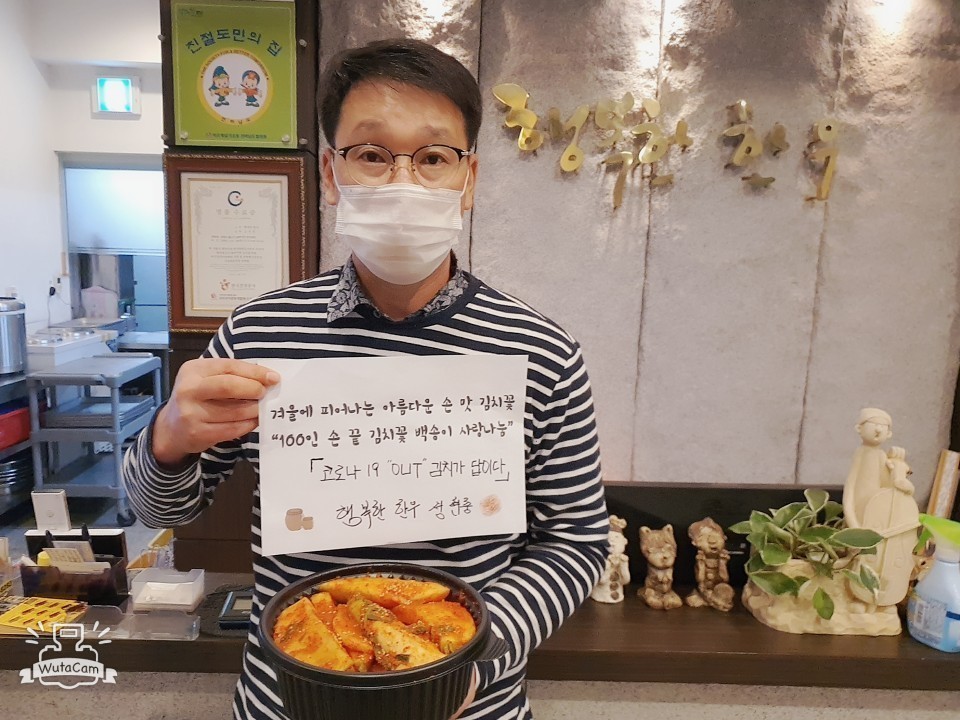 친절도민의 집
행복한 한우
겨울에 피어나는 아름다운 손 맛 김치꽃
"100인 손 끝 김치꽃 백송이 사랑나눔"
「코로나 19 "OUT" 김치가 답이다」
행복한 한우 성현종
WutaCam